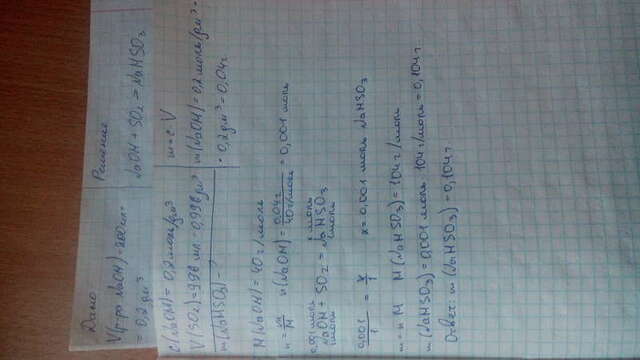 Дано
Решение
V(р-ра NaOH)=200мл=
= 0,2 дм³
NaOH + SO₂ = NaHSO₃
C(NaOH) = 0,2 моль/дм³
m = c · V
V(SO₂)=996 мл = 0,996 дм³
m(NaOH) = 0,2 моль/дм³ ·
· 0,2 дм³ = 0,04 г
m(NaHSO₃) - ?
M(NaOH) = 40 г/моль
n = m/M n(NaOH) = 0,04г/40 г/моль = 0,001 моль
0,001 моль x моль
NaOH + SO₂ = NaHSO₃
1моль 1моль
0,001/1 = x/1 x = 0,001 моль NaHSO₃
m = n M M(NaHSO₃) = 104 г/моль
m(NaHSO₃) = 0,001 моль 104 г/моль = 0,104 г
Ответ: m(NaHSO₃) = 0,104 г